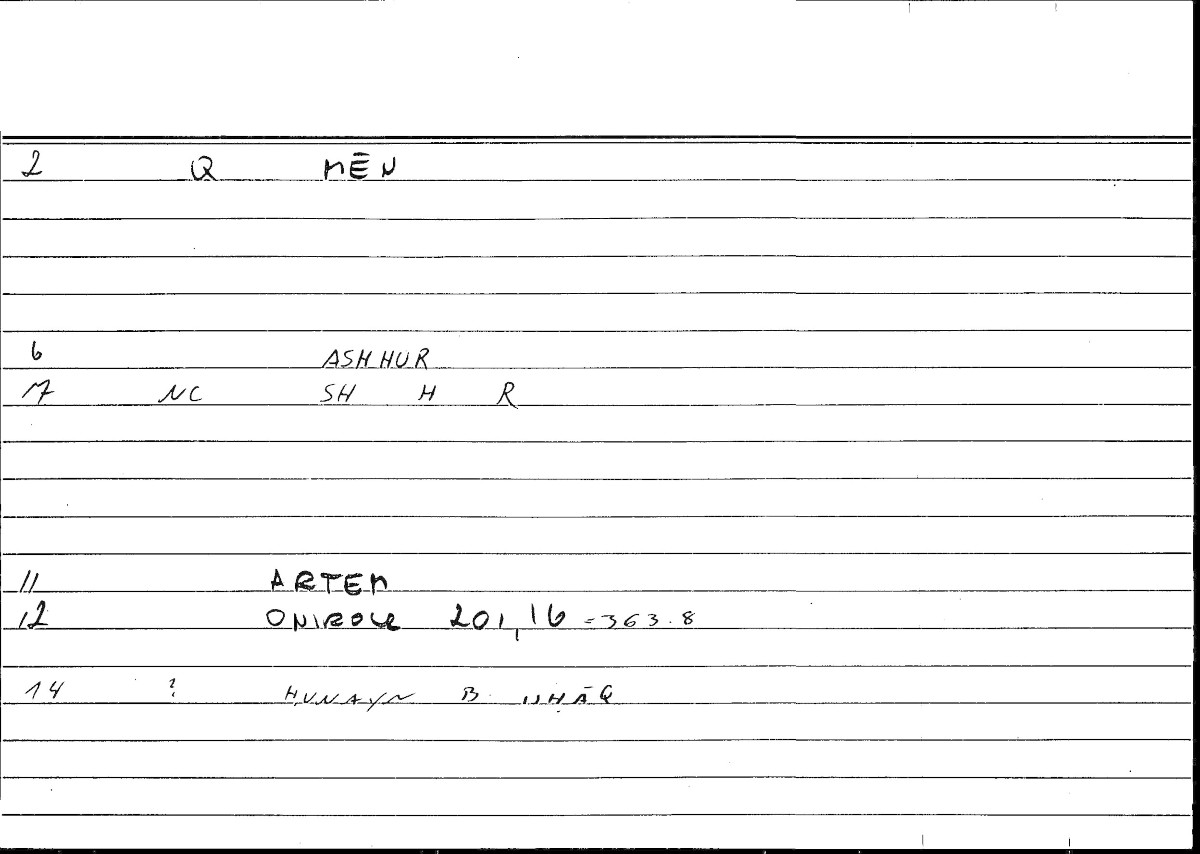 2 Q MĒN
6 ASHHUR
17 NC SH H R
11 ARTEM
12 ONIROCR 201,16 = 363.8
14 ? ḤUNAYN B ISḤĀQ